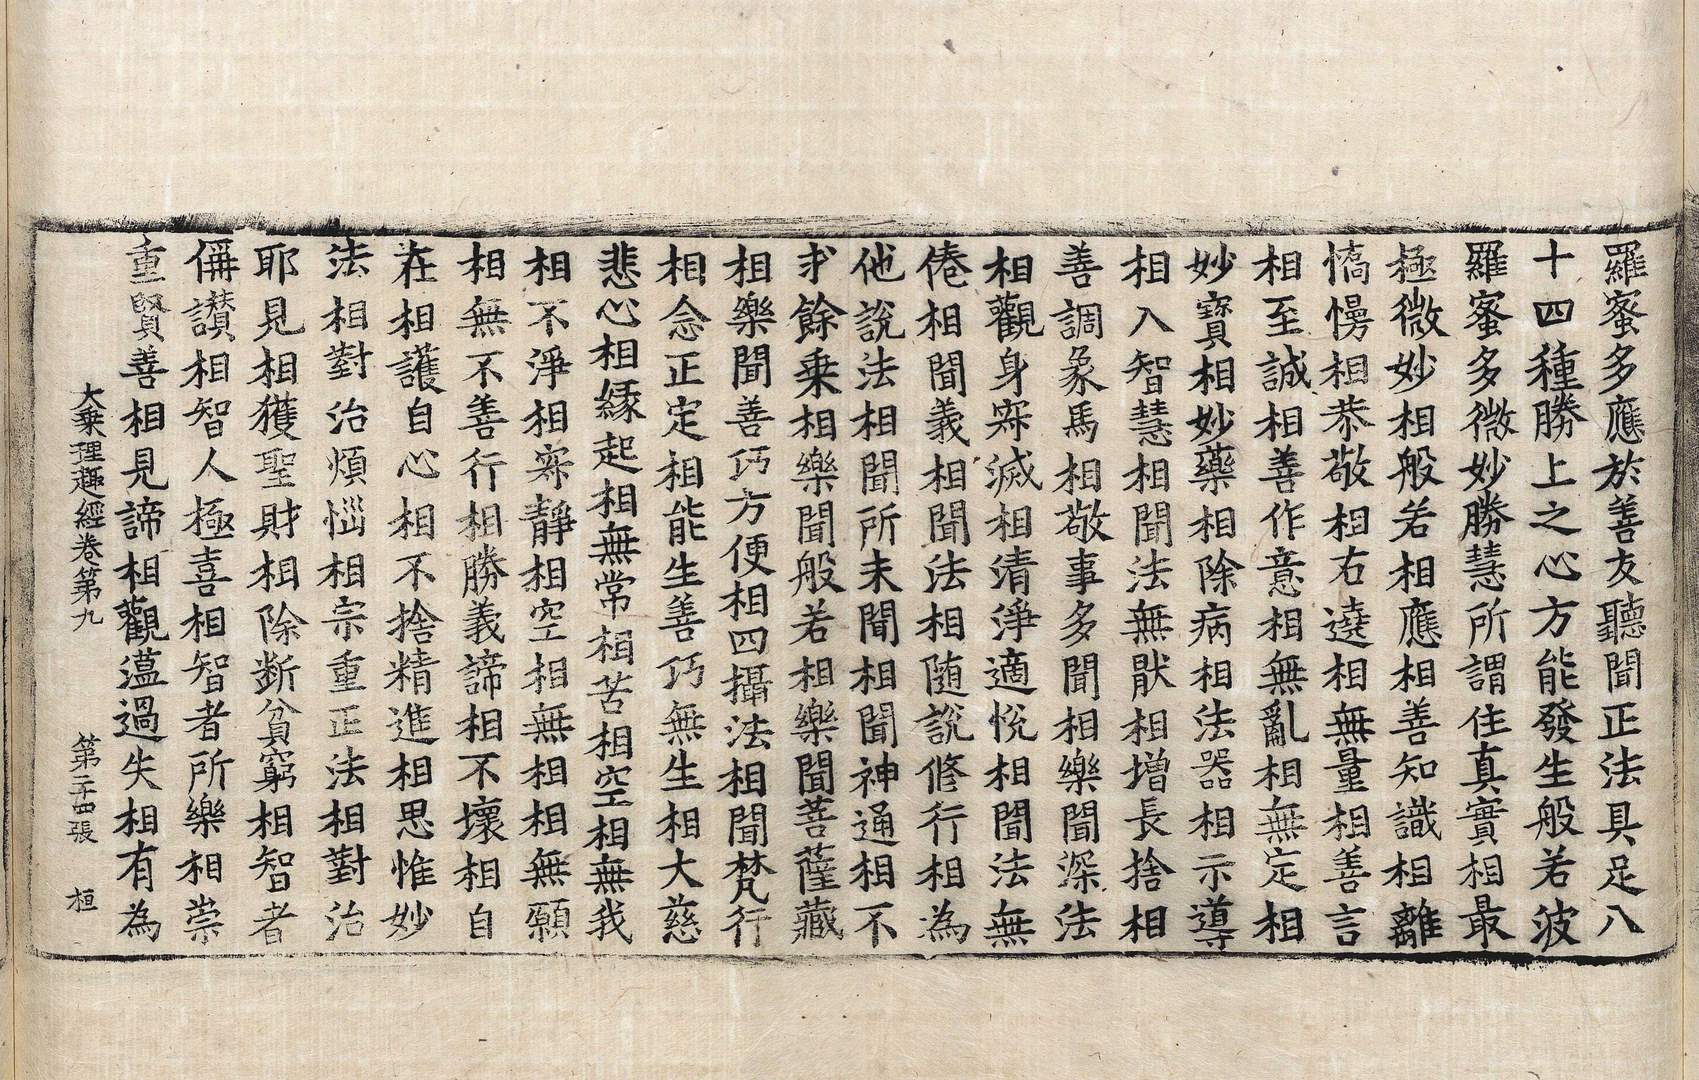 羅蜜多應於善友聽聞正法具足八
十四種勝上之心方能發生般若波
羅蜜多微妙勝慧所謂住真實相最
極微妙相般若相應相善知識相離
憍慢相恭敬相右遶相無量相善言
相至誠相善作意相無亂相無定相
妙寶相妙藥相除病相法器相示導
相入智慧相聞法無猒相增長捨相
善調象馬相敬事多聞相樂聞深法
相觀身寂滅相清淨適悅相聞法無
倦相聞義相聞法相随說修行相為
他說法相聞所未聞相聞神通相不
求餘乗相樂聞般若相樂聞菩薩藏
相樂聞善巧方便相四攝法相聞梵行
相念正定相能生善巧無生相大慈
悲心相緣起相無常相苦相空相無我
相不淨相寂靜相空相無相相無願
相無不善行相勝義諦相不壞相自
在相護自心相不捨精進相思惟妙
法相對治煩惱相宗重正法相對治
耶見相獲聖財相除断貧窮相智者
稱讃相智人極喜相智者所樂相崇
重賢善相見諦相觀薀過失相有為
大乗理趣經卷第九 第二十四張 桓